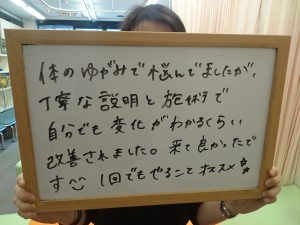 体のゆがみで悩んでましたが、
丁寧な説明と施術で
自分でも変化がわかるくらい
改善されました。来て良かったで
す 1回でもやることオススメ